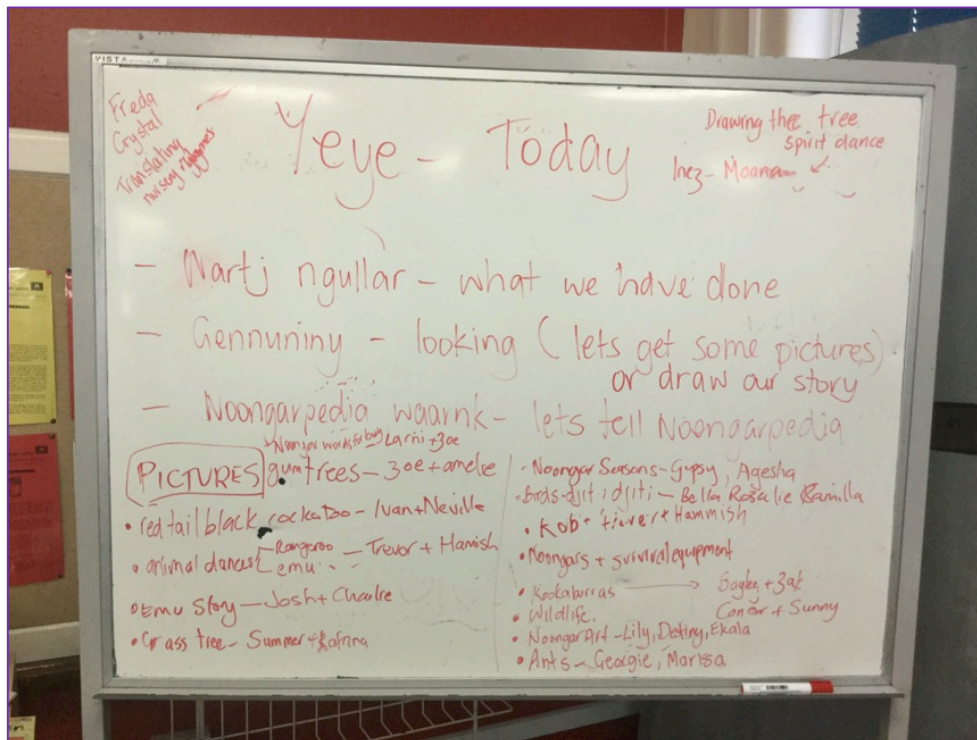 VISTA
Freda
Crystal
Translating
nursery rhymes
Yeye - Today
Drawing thee tree
spirit dance
Inez - Moana
- Wartj ngullar - what we have done
- Gennuniny - looking (lets get some pictures)
or draw our story
- Noongarpedia waarnk - lets tell Noongarpedia
Larni + Zoe
PICTURES
gum trees - Zoe + amelie
• red tail black cockatoo - Ivan + Neville
• animal dances Kangaroo
emu - Trevor + Hamish
• Emu Story - Josh + Charlie
• Grass tree - Summer + Katrina
• Noongar Seasons - Gypsy, Agesha
- Birds - djiti djiti - Bella Rosalie Kamilla
• Kob + Hammish
• Noongars + survival equipment
• Kookaburras → + Zak
• Wildlife. Conor + Sunny
• Noongar Art - Lily, Destiny, Ekala
• Ants - Georgie, Marissa